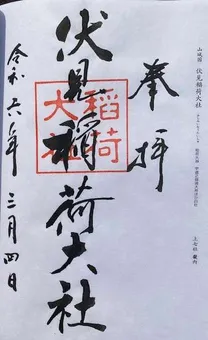 奉拝
伏見稲荷大社
稲荷
大社
令和六年三月四日
山城国 伏見稲荷大社